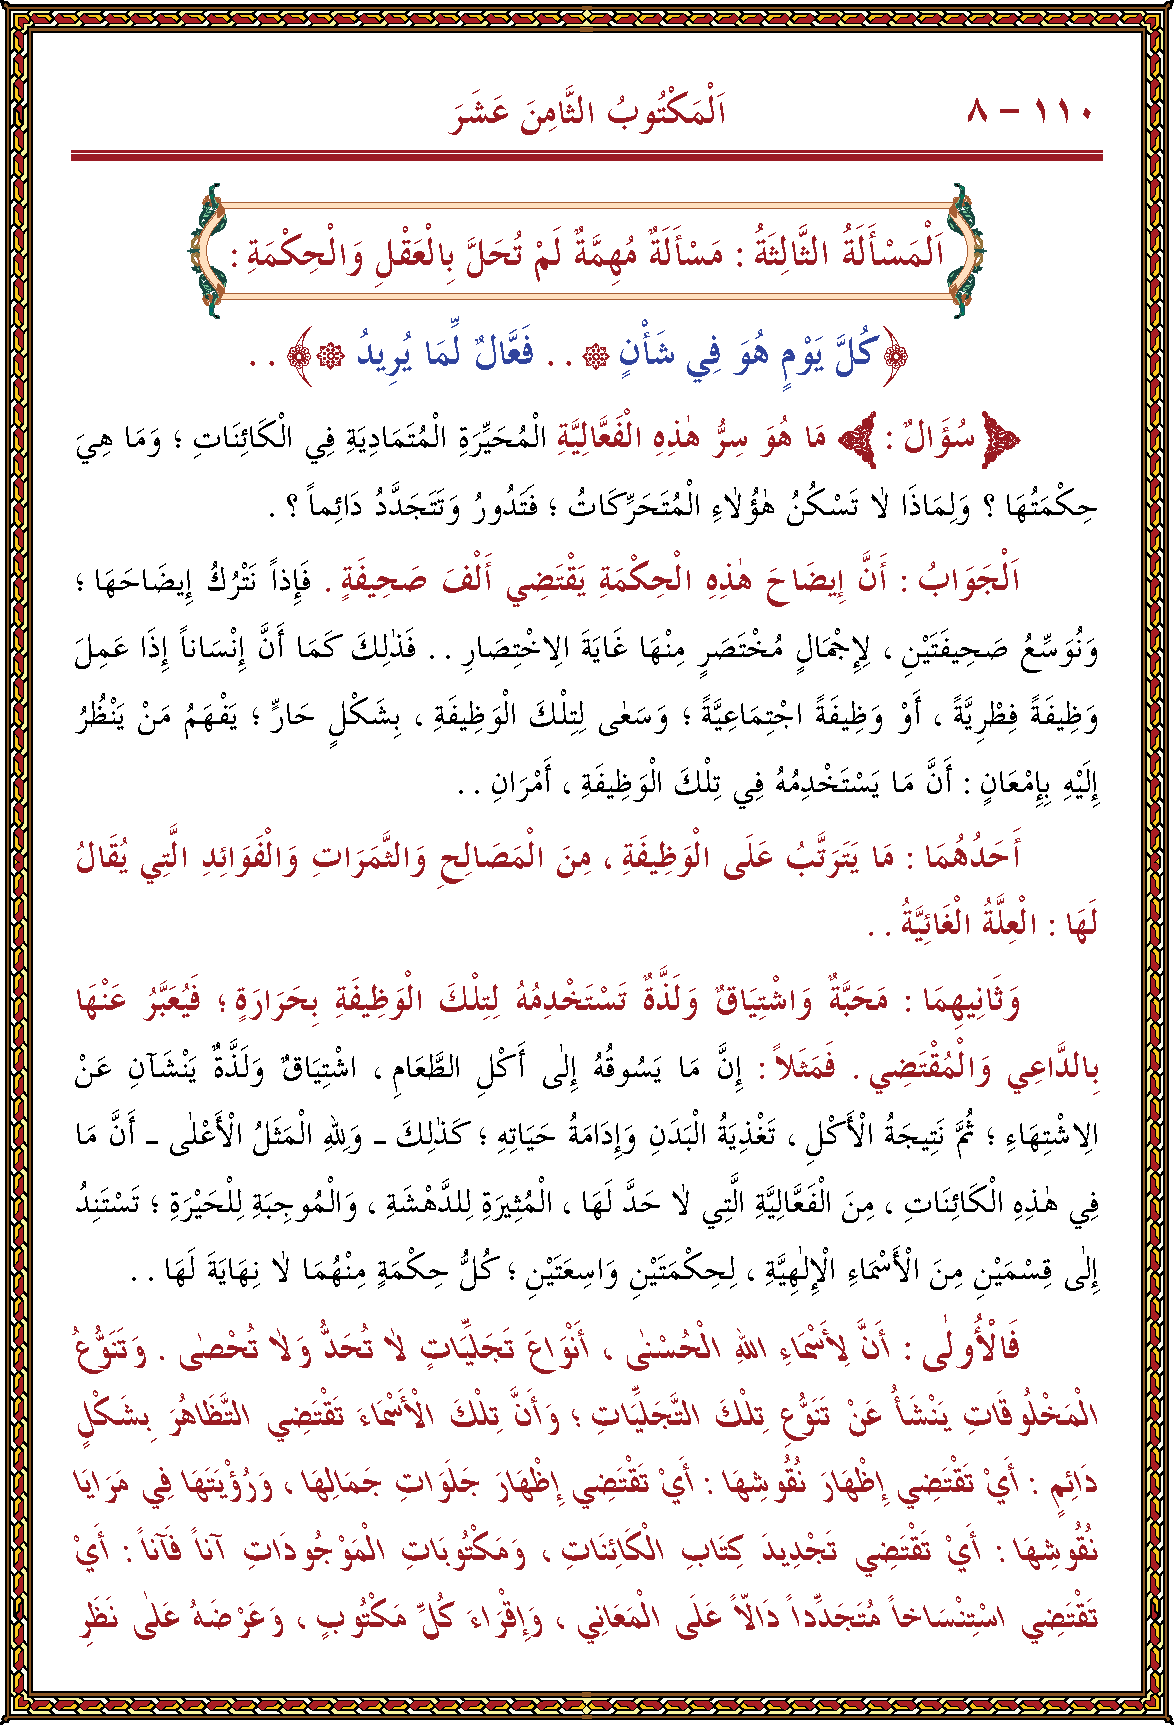 ١١٠ – ٨ اَلْمَكْتُوبُ الثَّامِنَ عَشَرَ
اَلْمَسْأَلَةُ الثَّالِثَةُ : مَسْأَلَةٌ مُهِمَّةٌ لَمْ تُحَلَّ بِالْعَقْلِ وَالْحِكْمَةِ :
﴿كُلَّ يَوْمٍ هُوَ فِي شَأْنٍ ۞ . . فَعَّالٌ لِّمَا يُرِيدُ ۞﴾ . .
سُؤَالٌ : مَا هُوَ سِرُّ هٰذِهِ الْفَعَّالِيَّةِ الْمُحَيِّرَةِ الْمُتَمَادِيَةِ فِي الْكَائِنَاتِ ؛ وَمَا هِيَ
حِكْمَتُهَا ؟ وَلِمَاذَا لَا تَسْكُنُ هٰؤُلَاءِ الْمُتَحَرِّكَاتُ ؛ فَتَدُورُ وَتَتَجَدَّدُ دَائِماً ؟ .
اَلْجَوَابُ : أَنَّ إِيضَاحَ هٰذِهِ الْحِكْمَةِ يَقْتَضِي أَلْفَ صَحِيفَةٍ . فَإِذاً نَتْرُكُ إِيضَاحَهَا ؛
وَنُوَسِّعُ صَحِيفَتَيْنِ ، لِإِجْمَالٍ مُخْتَصَرٍ مِنْهَا غَايَةَ الِاخْتِصَارِ . . فَذٰلِكَ كَمَا أَنَّ إِنْسَاناً إِذَا عَمِلَ
وَظِيفَةً فِطْرِيَّةً ، أَوْ وَظِيفَةً اجْتِمَاعِيَّةً ؛ وَسَعٰى لِتِلْكَ الْوَظِيفَةِ ، بِشَكْلٍ حَارٍّ ؛ يَفْهَمُ مَنْ يَنْظُرُ
إِلَيْهِ بِإِمْعَانٍ : أَنَّ مَا يَسْتَخْدِمُهُ فِي تِلْكَ الْوَظِيفَةِ ، أَمْرَانِ . .
أَحَدُهُمَا : مَا يَتَرَتَّبُ عَلَى الْوَظِيفَةِ ، مِنَ الْمَصَالِحِ وَالثَّمَرَاتِ وَالْفَوَائِدِ الَّتِي يُقَالُ
لَهَا : الْعِلَّةُ الْغَائِيَّةُ . .
وَثَانِيهِمَا : مَحَبَّةٌ وَاشْتِيَاقٌ وَلَذَّةٌ تَسْتَخْدِمُهُ لِتِلْكَ الْوَظِيفَةِ بِحَرَارَةٍ ؛ فَيُعَبَّرُ عَنْهَا
بِالدَّاعِي وَالْمُقْتَضِي . فَمَثَلاً : إِنَّ مَا يَسُوقُهُ إِلٰى أَكْلِ الطَّعَامِ ، اشْتِيَاقٌ وَلَذَّةٌ يَنْشَآنِ عَنْ
الِاشْتِهَاءِ ؛ ثُمَّ نَتِيجَةُ الْأَكْلِ ، تَغْذِيَةُ الْبَدَنِ وَإِدَامَةُ حَيَاتِهِ ؛ كَذٰلِكَ – وَلِلهِ الْمَثَلُ الْأَعْلٰى – أَنَّ مَا
فِي هٰذِهِ الْكَائِنَاتِ ، مِنَ الْفَعَّالِيَّةِ الَّتِي لَا حَدَّ لَهَا ، الْمُثِيرَةِ لِلدَّهْشَةِ ، وَالْمُوجِبَةِ لِلْحَيْرَةِ ؛ تَسْتَنِدُ
إِلٰى قِسْمَيْنِ مِنَ الْأَسْمَاءِ الْإِلٰهِيَّةِ ، لِحِكْمَتَيْنِ وَاسِعَتَيْنِ ؛ كُلُّ حِكْمَةٍ مِنْهُمَا لَا نِهَايَةَ لَهَا . .
فَالْأُولٰى : أَنَّ لِأَسْمَاءِ اللهِ الْحُسْنٰى ، أَنْوَاعَ تَجَلِّيَاتٍ لَا تُحَدُّ وَلَا تُحْصٰى . وَتَنَوُّعُ
الْمَخْلُوقَاتِ يَنْشَأُ عَنْ تَنَوُّعِ تِلْكَ التَّجَلِّيَاتِ ؛ وَأَنَّ تِلْكَ الْأَسْمَاءَ تَقْتَضِي التَّظَاهُرَ بِشَكْلٍ
دَائِمٍ : أَيْ تَقْتَضِي إِظْهَارَ نُقُوشِهَا : أَيْ تَقْتَضِي إِظْهَارَ جَلَوَاتِ جَمَالِهَا ، وَرُؤْيَتَهَا فِي مَرَايَا
نُقُوشِهَا : أَيْ تَقْتَضِي تَجْدِيدَ كِتَابِ الْكَائِنَاتِ ، وَمَكْتُوبَاتِ الْمَوْجُودَاتِ آناً فَآناً : أَيْ
تَقْتَضِي اسْتِنْسَاخاً مُتَجَدِّداً دَالّاً عَلَى الْمَعَانِي ، وَإِقْرَاءَ كُلِّ مَكْتُوبٍ ، وَعَرْضَهُ عَلٰى نَظَرِ